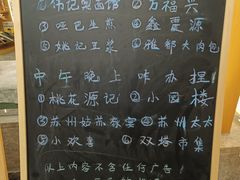 ①伟记奥面馆 ②万福兴
③哑巴生煎 ④鑫震源
⑤姚记豆浆 ⑥雅都大肉包
中午晚上咋办捏
①桃花源记 ②小园楼
③苏州姑苏桥宴 ④苏州太太
⑤小欢喜 ⑥双塔市集
以上内容不含任何广告!